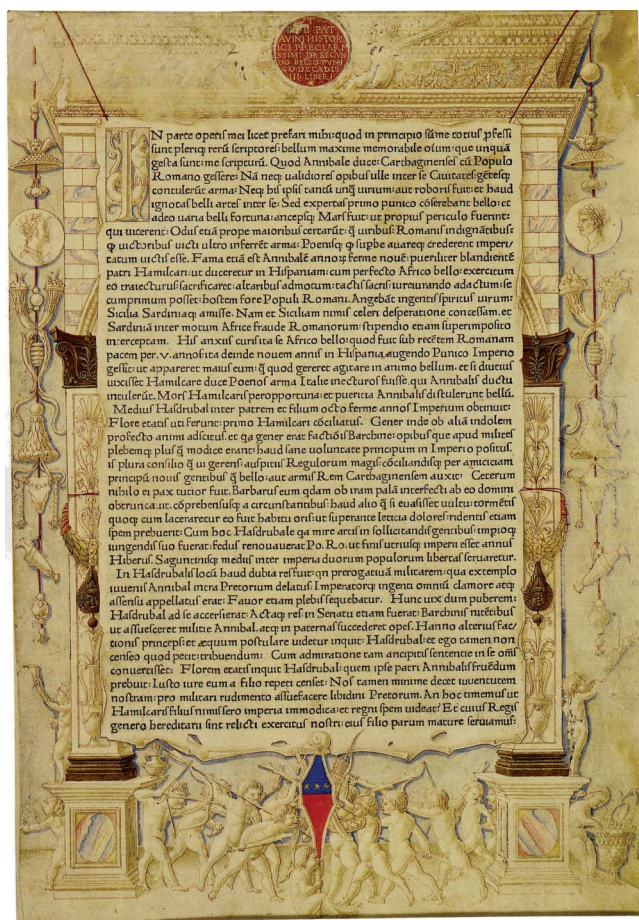 T · PAT
AVINI HISTOR
ICI PRECLARI
SSIMI DE SECVN
DO BELLO PVNI
CO DECADIS
III · LIBER I
IN parte operis mei licet prefari mihi: quod in principio sūme totius p̄fessi
sunt pleriq; rerū scriptores: bellum maxime memorabile oīum: que unquā
gesta sunt: me scripturū. Quod Annibale duce: Carthaginenses cū Populo
Romano gessere: Nā neq; ualidiores opibus ulle inter se Ciuitates: gētesq;
contulerūt arma: Neq; his ipsis tantū unq̄ uirium: aut roboris fuit: et haud
ignotas belli artes inter se: Sed expertas primo punico cōserebant bello: et
adeo uaria belli fortuna: ancepsq; Mars fuit: ut propius periculo fuerint:
qui uicerent: Odiis etiā prope maioribus certarūt: q̄ uiribus Romanis indignātibus:
ꝙ uictoribus uicti ultro inferrēt arma: Poenis: ꝙ supbe auareq; crederent imperi
tatum uictis esse. Fama etiā est Annibalē annoꝝ ferme nouē: pueriliter blandientē
patri Hamilcari: ut duceretur in Hispaniam: cum perfecto Africo bello: exercitum
eo traiecturus: sacrificaret: altaribus admotum: tactis sacris: iureiurando adactum: se
cumprimum posset: hostem fore Populi Romani. Angebāt ingentis spiritus uirum:
Sicilia Sardiniaq; amisse. Nam et Siciliam nimis celeri desperatione concessam. et
Sardiniā inter motum Africe fraude Romanorum: stipendio etiam superimposito
interceptam. His anxius curis ita se Africo bello: quod fuit sub recētem Romanam
pacem per. v. annos ita deinde nouem annis in Hispania, augendo Punico Imperio
gessit: ut appareret maius eum: q̄ quod gereret agitare in animo bellum. et si diutius
uixisset Hamilcare duce Poenos arma Italie inecturos fuisse, qui Annibalis ductu
intulerūt. Mors Hamilcaris peropportuna: et pueritia Annibalis distulerunt bellū.
Medius Hasdrubal inter patrem et filium octo ferme annos Imperium obtinuit:
Flore etatis uti ferunt: primo Hamilcari cōciliatus. Gener inde ob aliā indolem
profecto animi adscitus. et qa gener erat factiōis Barchine: opibus que apud milites
plebemq; plus q̄ modice erant: haud sane uoluntate principum in Imperio positus.
is plura consilio q̄ ui gerens: auspitiis Regulorum magis: cōciliandisq; per amiciciam
principū nouis gentibus q̄ bello: aut armis Rem Carthaginensem auxit. Ceterum
nihilo ei pax tutior fuit. Barbarus eum qdam ob iram palā interfecti ab eo domini
obtruncauit. cōprehensusq; a circumstantibus: haud alio q̄ si euasisset uultu: tormētis
quoq; cum laceraretur eo fuit habitu oris: ut superante leticia dolores: ridentis etiam
spem prebuerit: Cum hoc Hasdrubale qa mire artis in sollicitandis gentibus: impioq;
iungendis suo fuerat: fedus renouauerat Po. Ro. ut finis utriusq; imperii esset annus
Hiberus. Saguntinisq; mediis inter imperia duorum populorum libertas seruaretur.
In Hasdrubalis locū haud dubia res fuit: qn prerogatiuā militarem: qua extemplo
iuuenis Annibal intra Pretorium delatus: Imperatorq; ingenti omniū clamore atq;
assensu appellatus erat: Fauor etiam plebis sequebatur. Hunc uix dum puberem:
Hasdrubal ad se accersierat: Actaq; res in Senatu etiam fuerat: Barchinis nitētibus
ut assuesceret militie Annibal. atq; in paternas succederet opes. Hanno alterius fac
tionis princeps: et æquum postulare uidetur inquit: Hasdrubal: et ego tamen non
censeo quod petit: tribuendum: Cum admiratione tam ancipitis sententie in se oēs
conuertisset: Florem etatis inquit Hasdrubal: quem ipse patri Annibalis fruēdum
prebuit: Iusto iure eum a filio repeti censet: Nos tamen minime decet iuuentutem
nostram: pro militari rudimento assuefacere libidini Pretorum. An hoc timemus ut
Hamilcaris filius nimis sero imperia immodica: et regni spem uideat? Et cuius Regis
genero hereditarii sint relicti exercitus nostri: eius filio parum mature seruiamus: